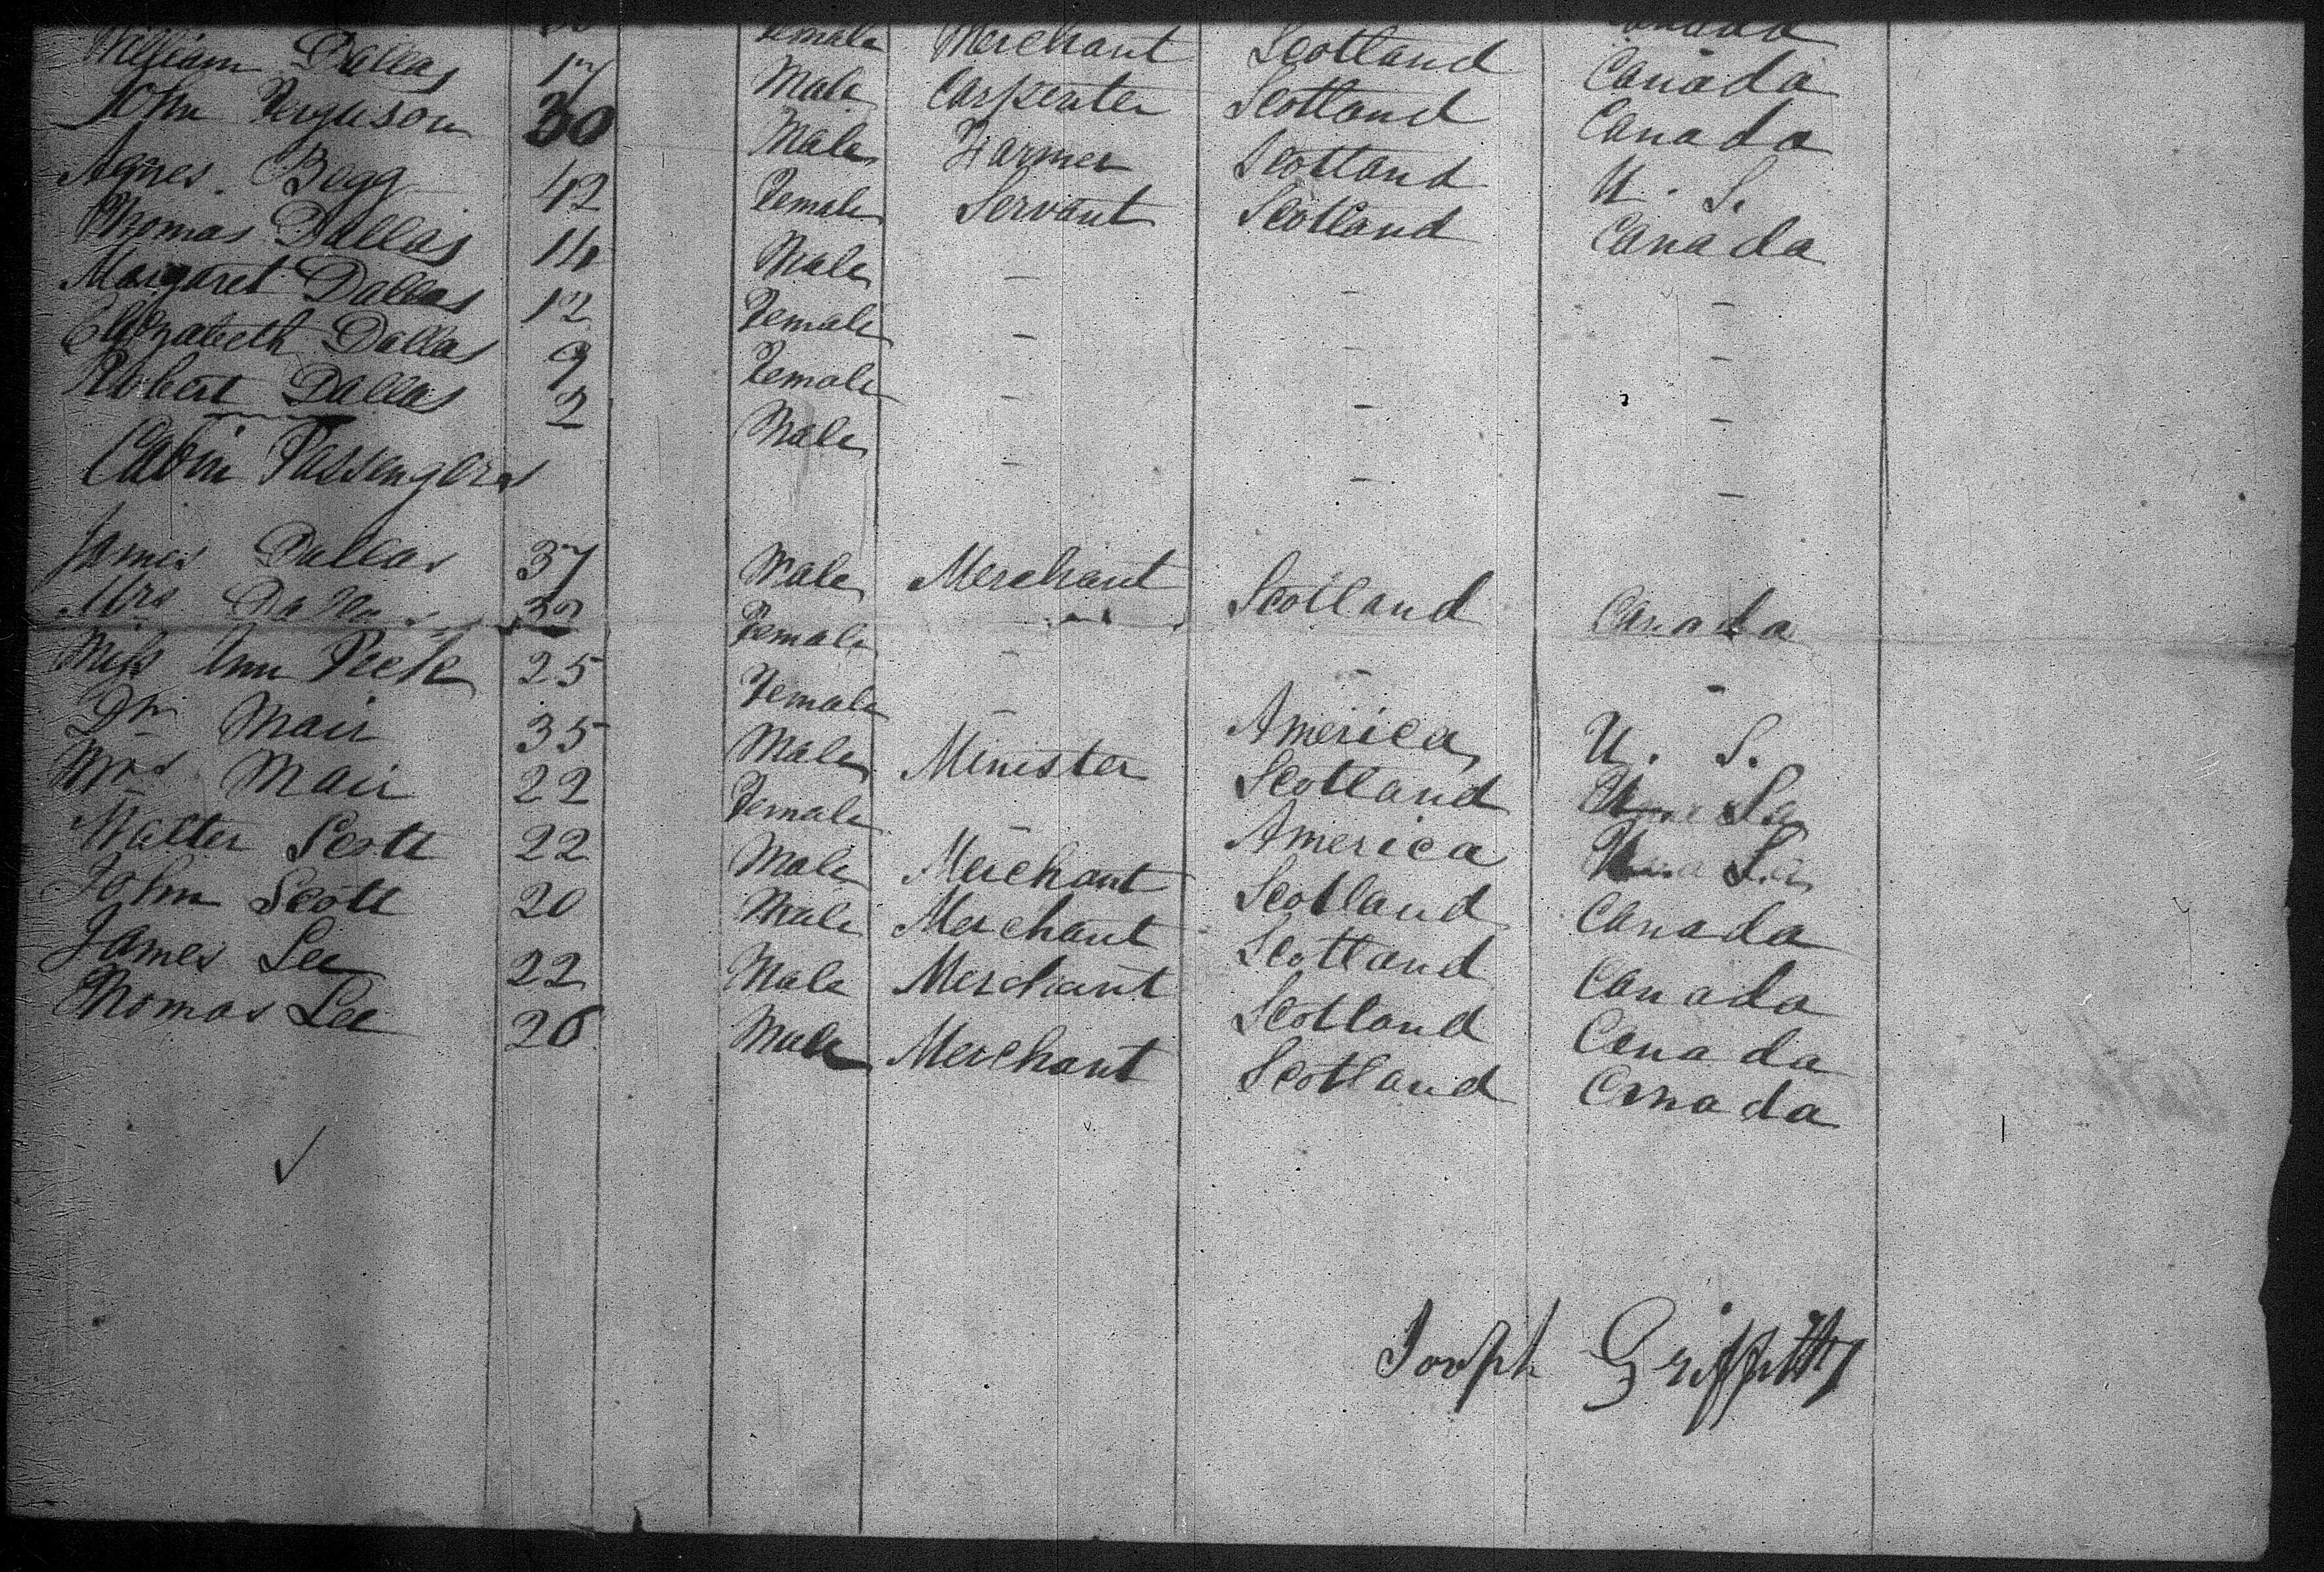 Female Merchant Scotland Canada
William Dallas 17 Male Carpenter Scotland Canada
John Ferguson 30 Male Farmer Scotland U. S.
Agnes Begg 42 Female Servant Scotland Canada
Thomas Dallas 14 Male - - -
Margaret Dallas 12 Female - - -
Elizabeth Dallas 9 Female - - -
Robert Dallas 2 Male - - -
Cabin Passengers
James Dallas 37 Male Merchant Scotland Canada
Mrs Dallas 32 Female - - -
Miss Ann 25 Female - America U. S.
Dr Mair 35 Male Minister Scotland
Mrs Mair 22 Female - America
Walter Scott 22 Male Merchant Scotland Canada
John Scott 20 Male Merchant Scotland Canada
James Lee 22 Male Merchant Scotland Canada
Thomas Lee 20 Male Merchant Scotland Canada
Joseph Griffiths